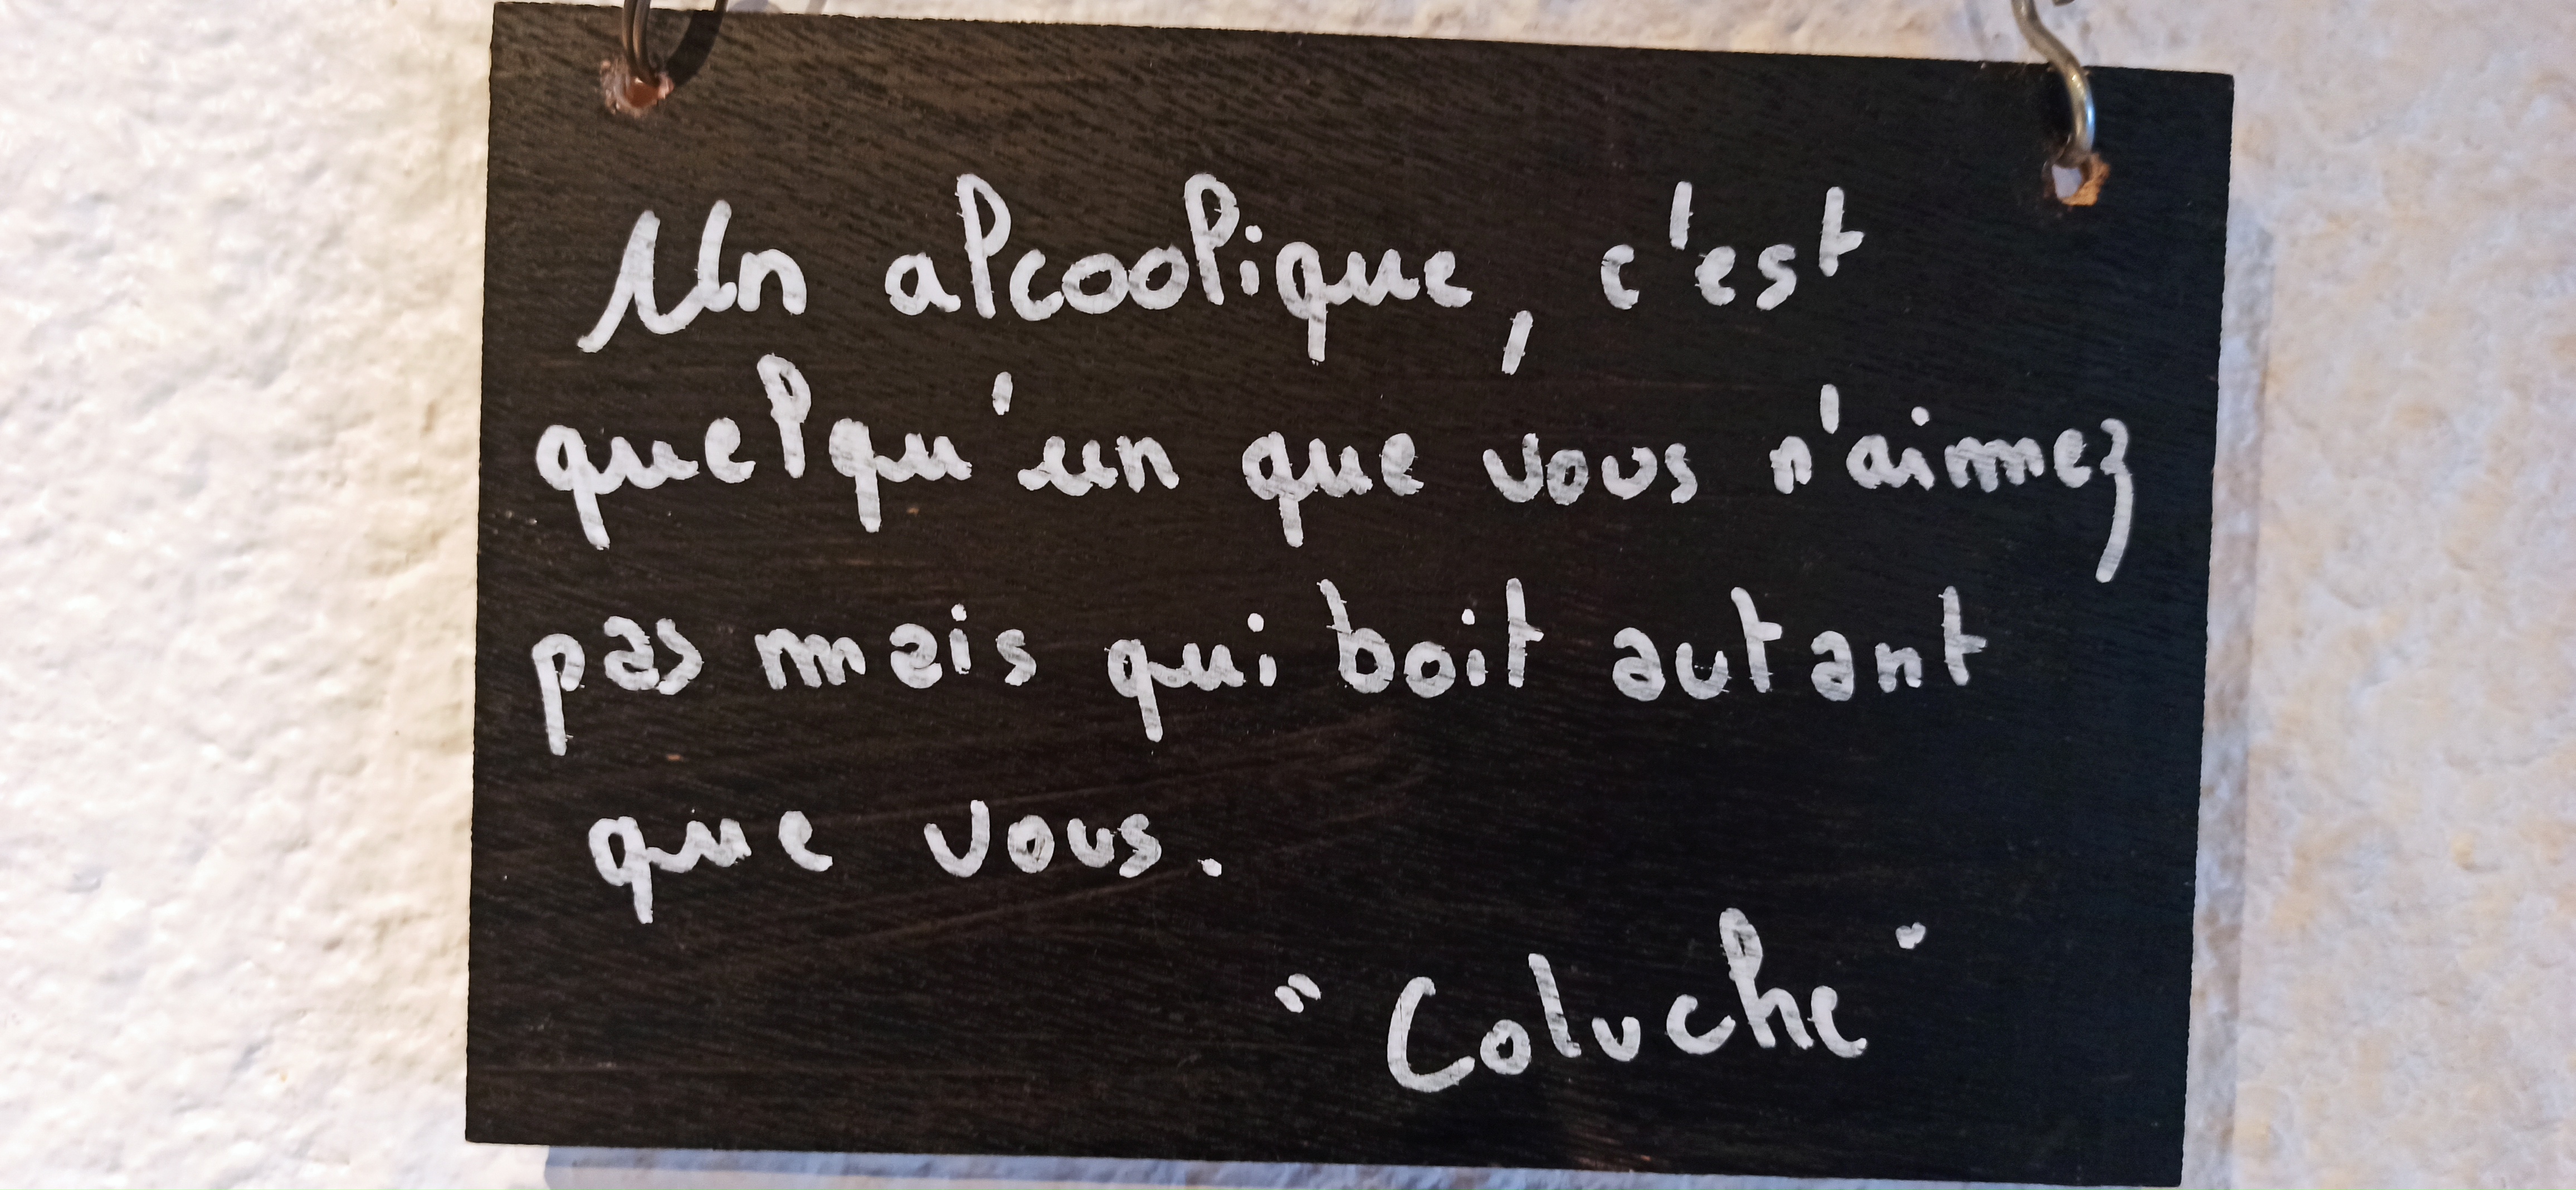 Un alcoolique, c'est
quelqu'un que vous n'aimez
pas mais qui boit autant
que vous.
"Coluche"